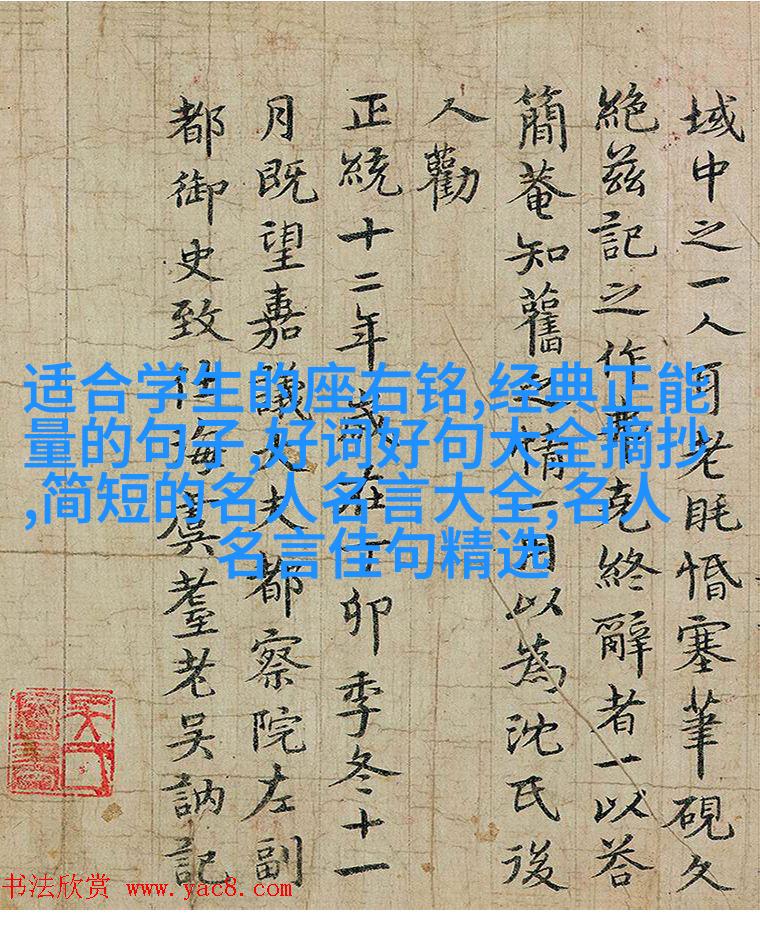 域中之一人耳老眊惛塞筆硯久
絕茲記之作克終辭者一以荅
簡菴知舊之情一用以為沈氏後
人勸
正統十二年歲在丁卯季冬十一
月既望嘉議大夫都察院左副
都御史致仕海虞耋老吳訥記
适合学生的座右铭,经典正能
量的句子,好词好句大全摘抄
,简短的名人名言大全,名人
名言佳句精选
书法欣赏 www.yac8.com